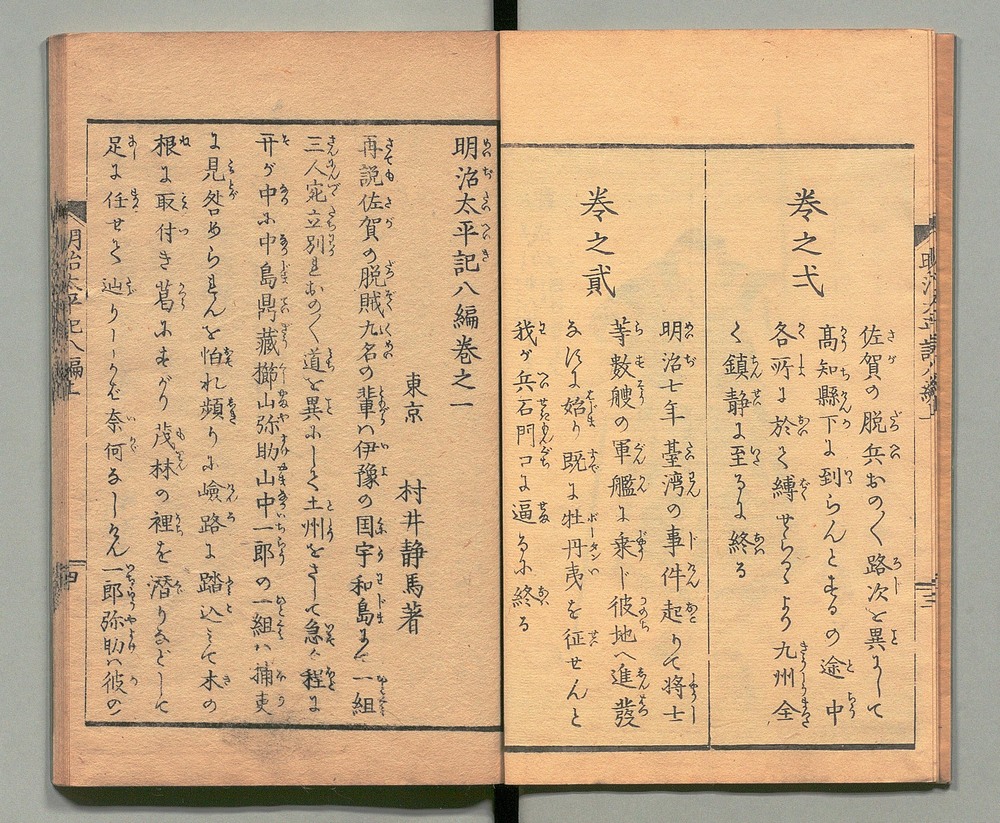 巻之弌
佐賀の脱兵おのく路次を異にして
高知縣下に到らんとするの途中
各所に於て縛せらるゝより九州全
く鎮静に至るに終る
巻之貳
明治七年臺湾の事件起りて将士
等數艘の軍艦に乗じ彼地へ進發
なすに始り既に牡丹夷を征せんと
我が兵石門口に逼るに終る
明治太平記八編巻之一
東京 村井静馬著
再説佐賀の脱賊九名の輩ハ伊豫の国宇和島にて一組
三人宛立別れおのく道を異にして土州をさして急ぐ程に
中に中島鼎藏 山弥助山中一郎の一組ハ捕吏
に見咎められんを怕れ頻りに嶮路に踏込ミて木の
根に取付き葛にすがり茂林の裡を潜りなどして
足に任せて辿りしかど奈何なしけん一郎弥助ハ彼の
明治太平記八編上